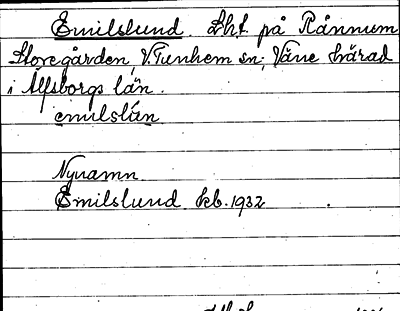 Emilslund. Lht. på Rånnum
Storegården, V. Tunhem sn; Väne härad
i Älfsborgs län.
emilslún
Nynamn.
Emilslund kb. 1932